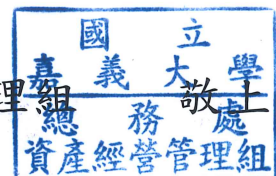 國立
嘉義大學
總務處
資產經營管理組
理組 敬上